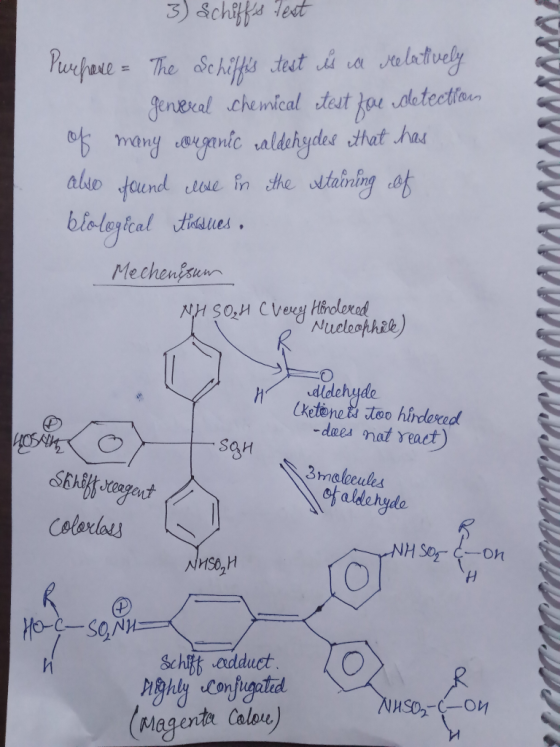 3) Schiff's Test
Purpose = The Schiff's test is a relatively
general chemical test for detection
of many organic aldehydes that has
also found use in the staining of
biological tissues.
Mechenisum
NH SO₂H (Very Hindered
Nucleophile)
R
H
O
Aldehyde
(Ketone is too hindered
-does not react)
⊕
SO₃H
Schiff reagent
Colorless
3 molecules
of aldehyde
NHSO₂H
R
NH SO₂-C-OH
H
R
⊕
HO-C-SO₂NH
H
Schiff adduct.
Highly conjugated
(Magenta Colour)
R
NHSO₂-C-OH
H